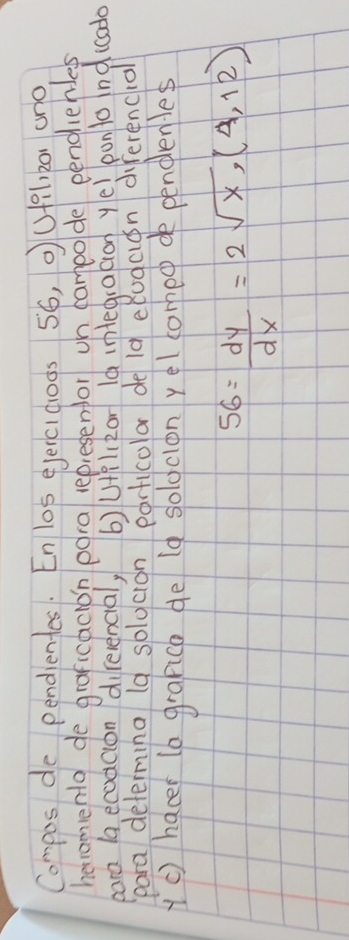 Campos de pendientes. En los ejercicioos 56, a) Utilizar una
herramienta de graficación para representar un campo de pendientes
para la ecuacion diferencial, b) Utilizar la integracion y el punto indicado
para determina la solucion particular de la ecuación diferencial
y c) hacer la grafica de la solucion y el campo de pendentes
56 = dy/dx = 2 √x, (4, 12)